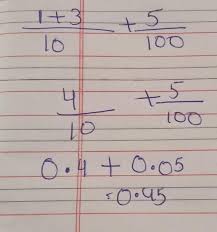 1+3/10 + 5/100
4/10 + 5/100
0.4 + 0.05
=0.45